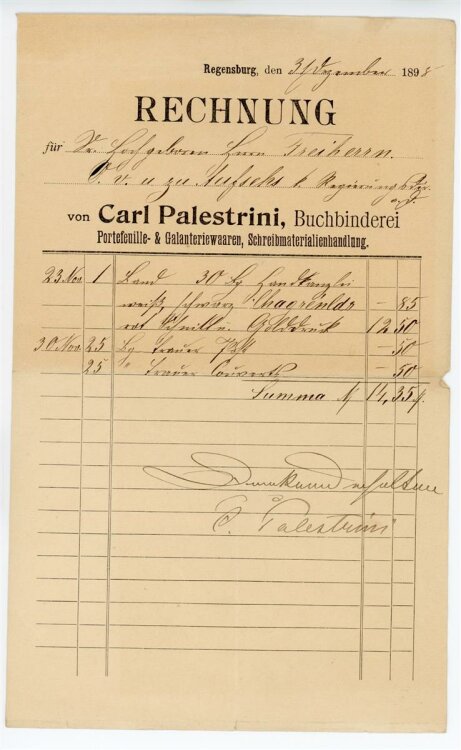 Regensburg, den 31 Dezember 1898
RECHNUNG
für Sr. Hochgeboren Herrn Freiherrn
O. v. u. zu Aufsess k. Regierungs
a.D.
von Carl Palestrini, Buchbinderei
Portefeuille- & Galanteriewaaren, Schreibmaterialienhandlung.
23 Nov. 1 Band 30 Bg Handkanzlei
weiß, schwarz – 85
rot Schnitt u. Golddruck 12 50
30 Nov. 25 Bg Trauer – 50
25 " Trauer Couverts – 50
Summa M 14,35 ₰.
Dankend erhalten
C. Palestrini